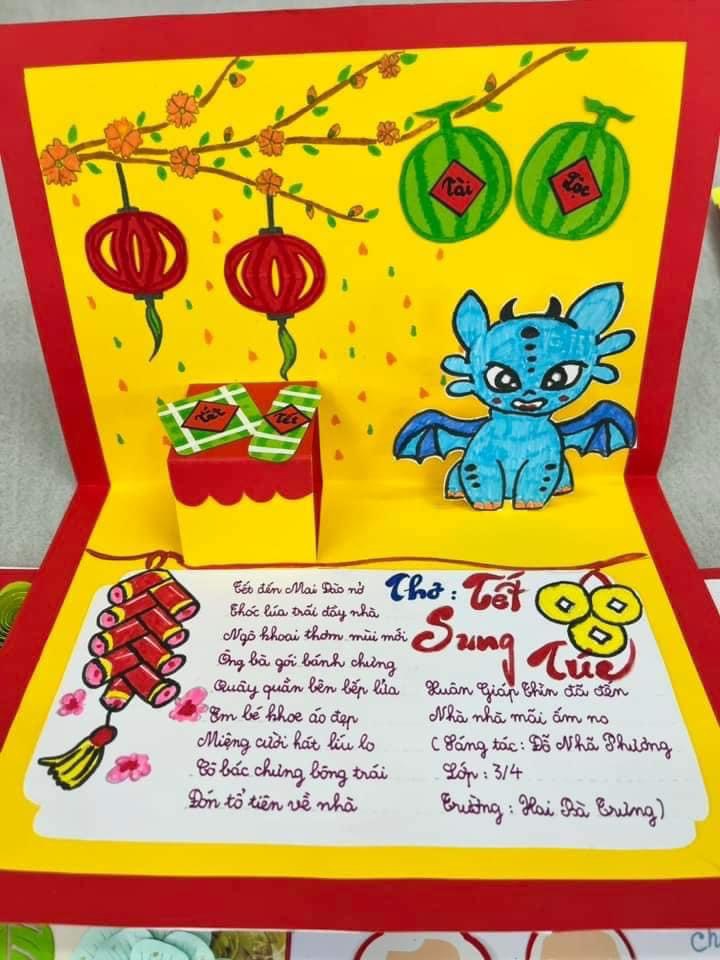 Tài
Lộc
Tết
Thơ : Tết
Sung Túc
Tết đến Mai Đào nở
Thóc lúa trải đầy nhà
Ngô khoai thơm mùi mới
Ông bà gói bánh chưng
Quây quần bên bếp lửa
Em bé khoe áo đẹp
Miệng cười hát líu lo
Cô bác chưng bông trái
Đón tổ tiên về nhà
Xuân Giáp Thìn đã đến
Nhà nhà mãi ấm no
( Sáng tác : Đỗ Nhã Phương
Lớp : 3/4
Trường : Hai Bà Trưng)